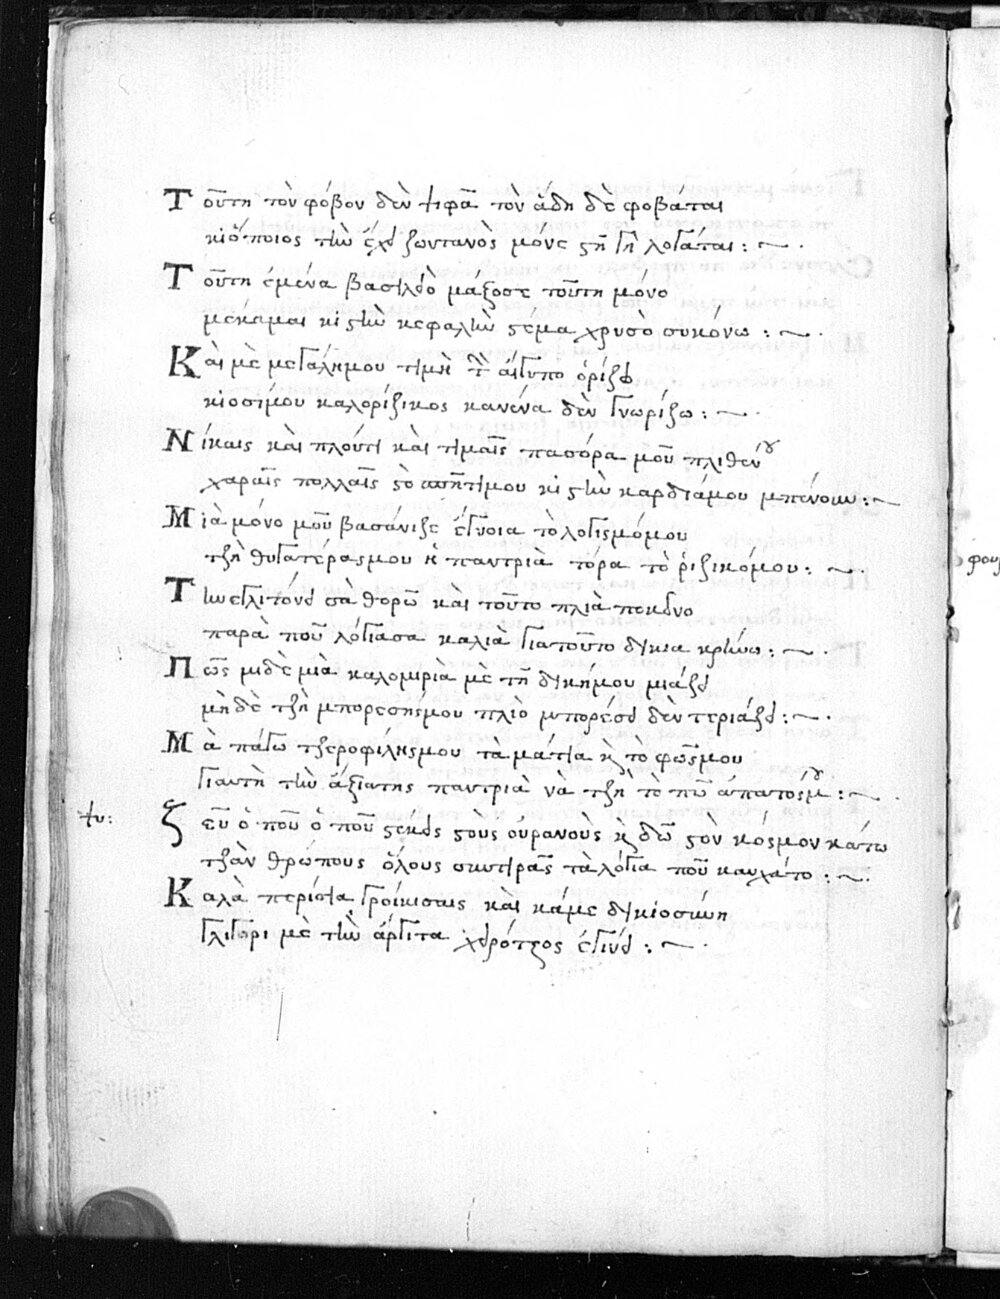 Τοῦτη τὸν φόβον δὲν ψιφᾶ τὸν ἅδη δὲ φοβάται
κιὅποιος τὴν ἔχει ζωντανὸς μόνε ςτῆ γῆ λογάται :~.
Τοῦτη ἐμένα βασιλειὸ μάξοσε τοῦτη μόνο
μέκαμαι κι ςτὴν κεφαλὴν ςεμα χρυσὸ συκόνω :~.
Κάὶ μὲ μεγάλημου τιμὴ τ αἴγυπο ὁρίζω
κιοσίμου καλορίζικος κανένα δὲν γνωρίζω :~.
Νίκαις κάὶ πλούτι κάὶ τιμαῖς πασόρα μοῦ πλιθένου
χαραῖς πολλαῖς ςὸ σπήτιμου κι ςτὴν καρδιάμου μπένουν :~
Μιὰ μόνο μοῦ βασάνιζε ἔγνοια τὸ λογισμόμου
τζὴ θυγατέραςμου ἡ παντριὰ τόρα τὸ ῥιζικόμου :~.
Τὴν ἐγλιτόνει σὰ θορῶ κάὶ τοῦτο πλιὰ πειδνο
παρὰ ποῦ λόγιασα καλια γιατοῦτο δίκια κρίνω :~.
Πῶς μιδὲ μιὰ καλομιριὰ με τῆ δικήμου μιάζει
μὴδὲ τζὴ μπορεσήμου πλιὸ μπορέσει δὲν τεριάζει :~.
Μὰ πάγω τζεροφίλησμου τὰ μάτια κ τὸ φῶςμου
γιαυτὴ τὴν ἄξιατης παντριὰ νὰ τζὴ τὸ πῶ ἀπατόςμου :~.
ψυ: Ζεῦ ὁ ποῦ ὁ ποῦ ςέκεις ςους ουρανοὺς κ δῶ ςὸν κόςμον κάτω
τζὰν θρώπους ὅλους συντιρᾶς τὰ λόγια ποῦ καυχάτο :~.
Καλὰ περίσια γροίκισαις κάὶ κάμε δικιοσύνη
γλίγορι μὲ τὴν ἀργίτα χειρότζος ἐγίνει :~.